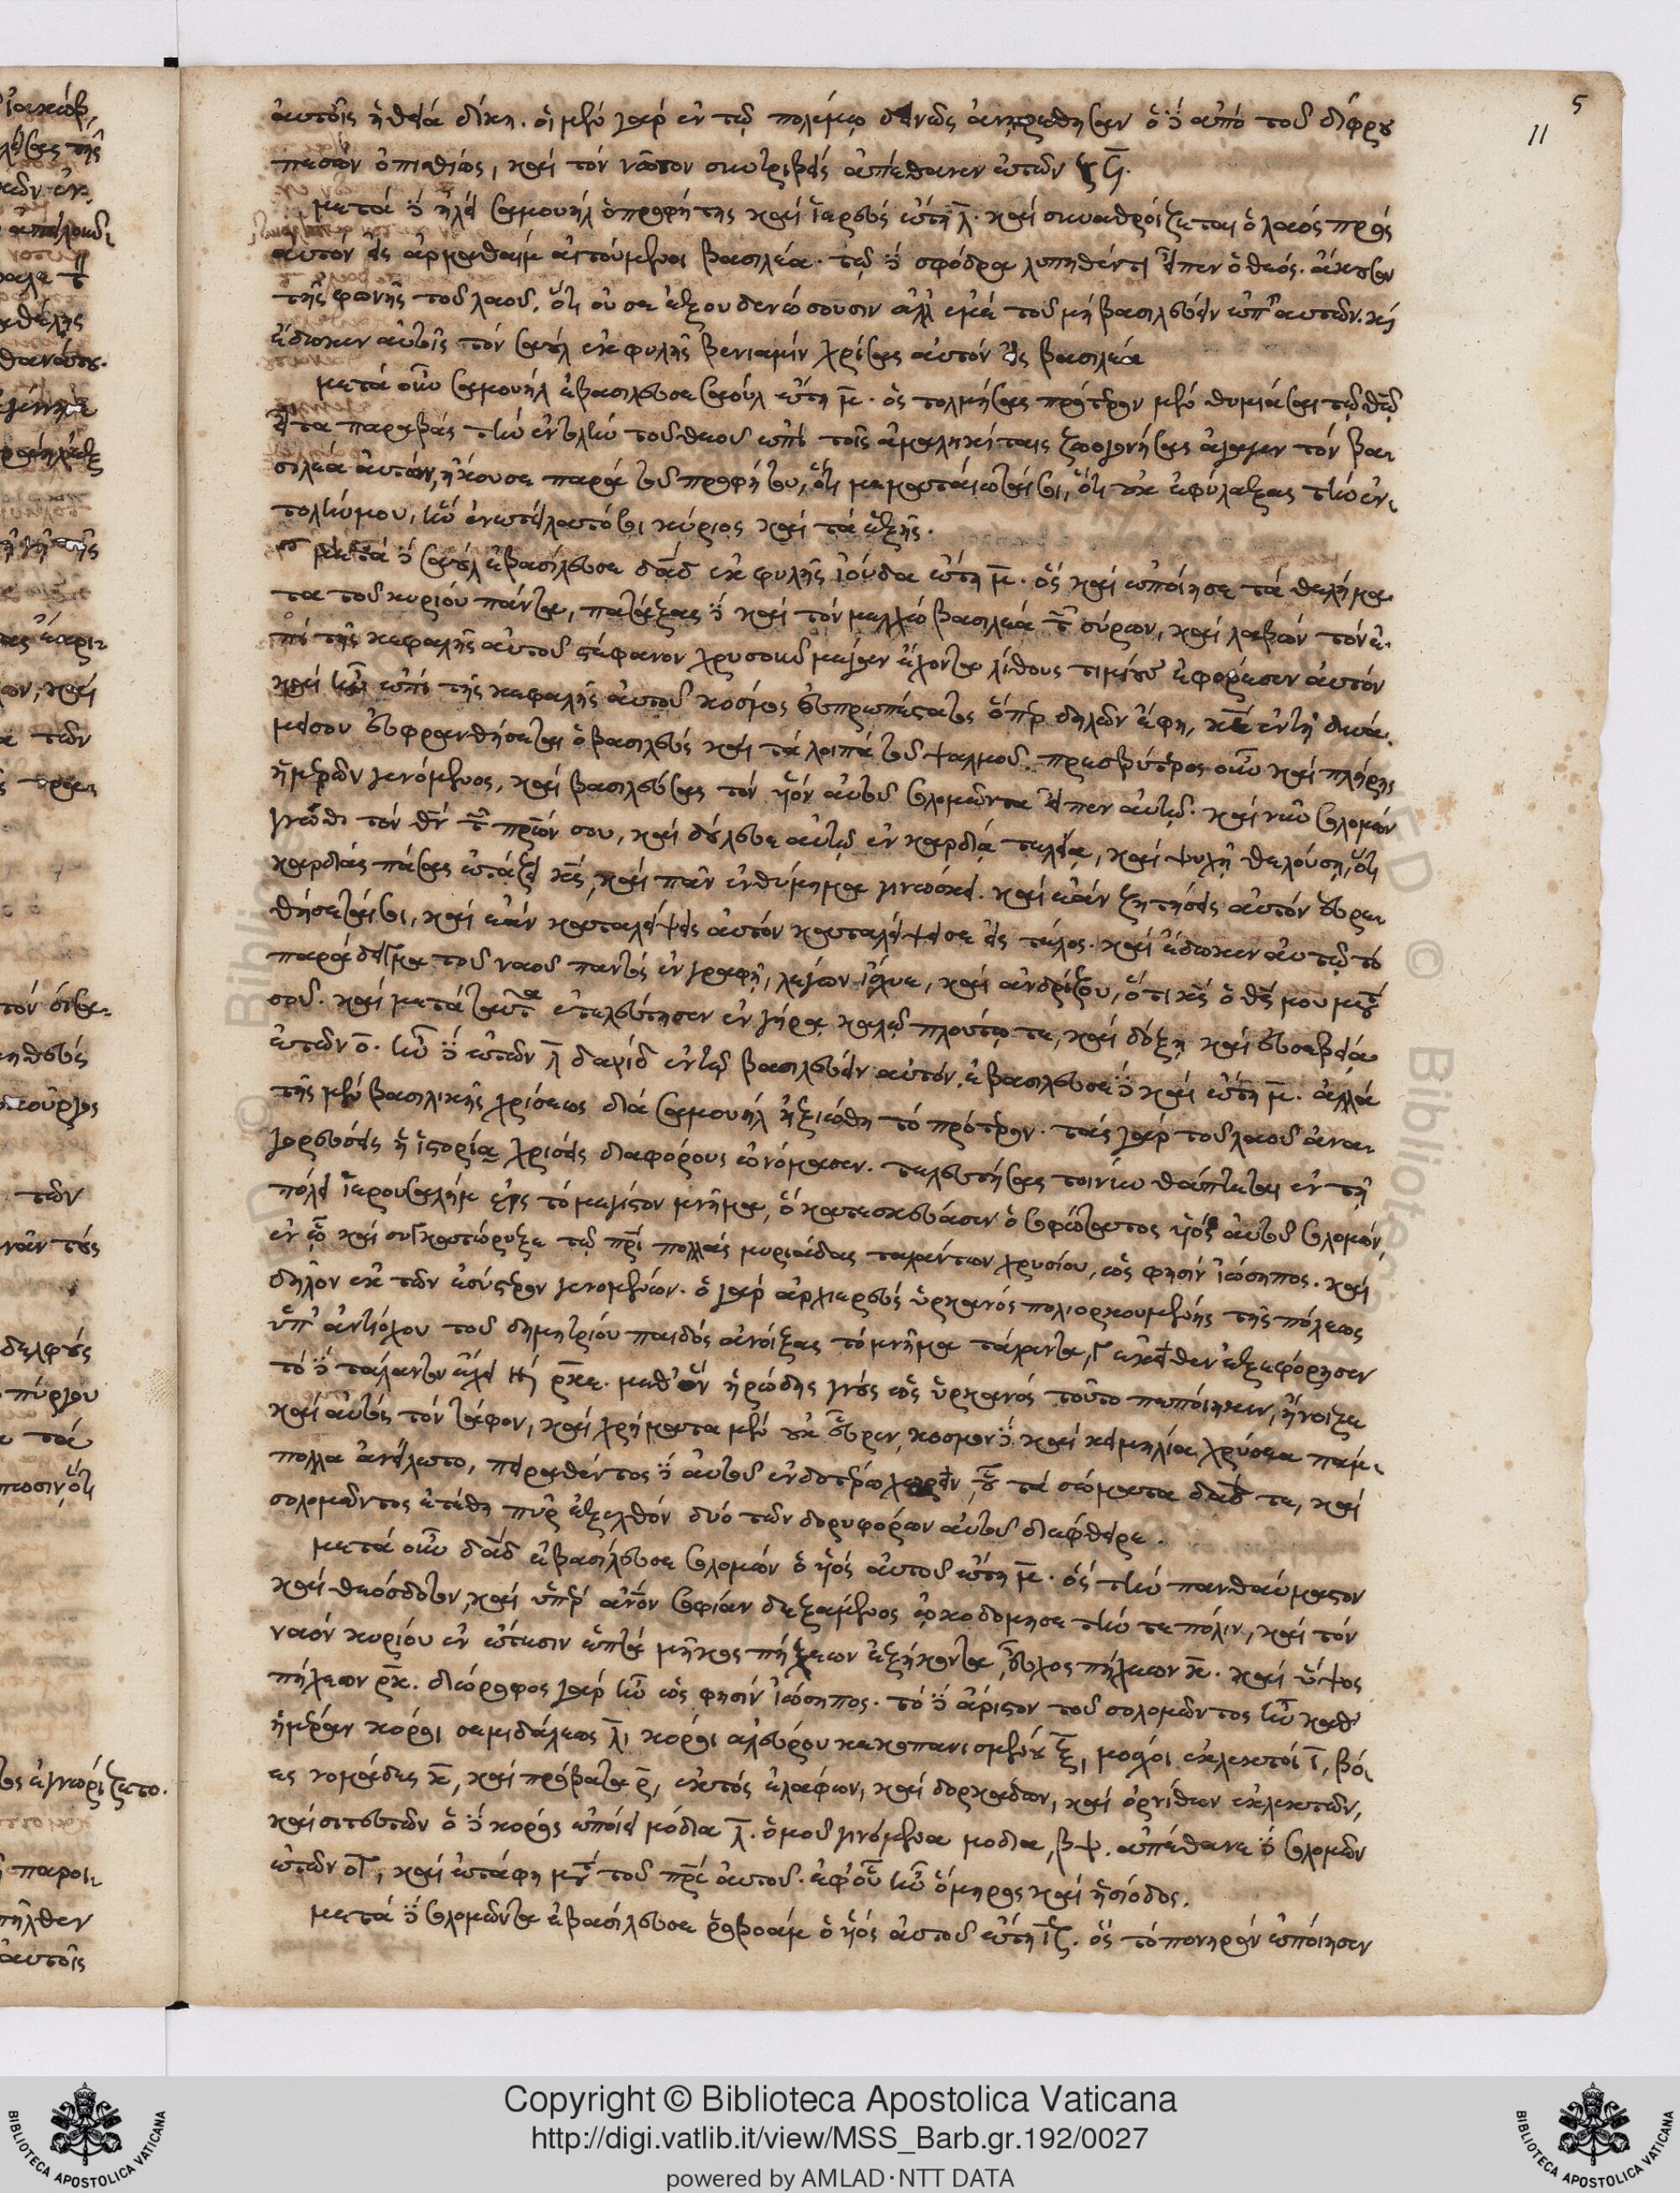 5
11
αὐτοῖς ἡ θεία δίκη. οἱ μὲν γὰρ ἐν τῷ πολέμῳ δεινῶς ἀνῃρέθησαν ὁ δὲ ἀπὸ του δίφρου
πεσὼν ὀπισθίως, καὶ τὸν νῶτον συντριβεὶς ἀπέθανεν ἐτῶν
μετὰ δὲ ἠλεὶ σαμουὴλ ὁ προφήτης καὶ ἱερεὺς ἔτη λ. καὶ συναθροίζεται ὁ λαὸς πρὸς
αὐτὸν εἰς ἀρμαθαὶμ αἰτούμενοι βασιλέα. τῷ δὲ σφόδρα λυπηθέντι εἶπεν ὁ θεός. ἄκουσον
τῆς φωνῆς τοῦ λαοῦ, ὅτι οὐ σε ἐξουδενώσουσιν ἀλλ' ἐμὲ τοῦ μὴ βασιλεύειν ἐπ' αὐτῶν. καὶ
ἔδωκεν αὐτοῖς τὸν σαοὺλ ἐκ φυλῆς βενιαμὶν χρίσας αὐτὸν εἰς βασιλέα
μετὰ οὖν σαμουὴλ ἐβασίλευσε σαοὺλ ἔτη μ. ὃς τολμήσας πρότερον μὲν θυμιάσαι τῷ θεῷ
εἶτα παραβὰς τὴν ἐντολὴν τοῦ θεοῦ ἐπὶ τοῖς ἀμαληκίταις ζωογονήσας ἀγαγεν τὸν βα-
σιλέα αὐτῶν, ἤκουσε παρὰ τοῦ προφήτου, ὅτι μεματαίωταί σοι, ὅτι οὐκ ἐφύλαξας τὴν ἐν-
τολήν μου, ἣν ἐνετείλατό σοι κύριος καὶ τὰ ἑξῆς.
μετὰ δὲ σαοὺλ ἐβασίλευσε δαδ ἐκ φυλῆς ἰούδα ἔτη μ. ὃς καὶ ἐποίησε τὰ θελήμα-
τα τοῦ κυρίου πάντα, πατάξας δὲ καὶ τὸν μελχὼ βασιλέα τῶν σύρων, καὶ λαβὼν τὸν ἐ-
πὶ τῆς κεφαλῆς αὐτοῦ στέφανον χρυσοῦν μέγαν ἔχοντα λίθους τιμίους ἐφόρεσεν αὐτὸν
καὶ ἦν ἐπὶ τῆς κεφαλῆς αὐτοῦ κόσμος εὐπρεπέστατος ὅπερ δηλῶν ἔφη, κε ἐν τῇ δυνά-
μει σου εὐφρανθήσεται ὁ βασιλεὺς καὶ τὰ λοιπὰ τοῦ ψαλμοῦ. πρεσβύτερος οὖν καὶ πλήρης
ἡμερῶν γενόμενος, καὶ βασιλεύσας τὸν υἱὸν αὐτοῦ σολομῶντα εἶπεν αὐτῷ. καὶ νῦν σολομὼν
γνῶθι τὸν θν τῶν πρων σου, καὶ δούλευε αὐτῷ ἐν καρδίᾳ τελείᾳ, καὶ ψυχῇ θελούσῃ, ὅτι
καρδίας πάσας ἐτάζει κς, καὶ πᾶν ἐνθύμημα γινώσκει. καὶ ἐὰν ζητήσεις αὐτὸν εὑρε-
θήσεταί σοι, καὶ ἐὰν καταλείψεις αὐτὸν καταλείψει σε εἰς τέλος. καὶ ἔδωκεν αὐτῷ τὸ
παράδειγμα τοῦ ναοῦ παντὸς ἐν γραφῇ, λέγων ἴσχυε, καὶ ἀνδρίζου, ὅτι κς ὁ θς μου μετὰ
σοῦ. καὶ μετὰ ταῦτα ἐτελεύτησεν ἐν γήρᾳ καλῷ πλούτῳ τε, καὶ δόξῃ καὶ εὐσεβείᾳ
ἐτῶν ο. ἦν δὲ ἐτῶν λ δαυὶδ ἐν τῷ βασιλεύειν αὐτόν. ἐβασίλευσε δὲ καὶ ἔτη μ. ἀλλὰ
τῆς μὲν βασιλικῆς χρίσεως διὰ σαμουὴλ ἠξιώθη τὸ πρότερον. τὰς γὰρ τοῦ λαοῦ ἀνα-
γορεύσεις ἡ ἱστορία χρίσεις διαφόρους ὠνόμασεν. τελευτήσας τοίνυν θάπτεται ἐν τῇ
πόλει ἱερουσαλὴμ εἰς τὸ μέγιστον μνῆμα, ὃ κατεσκεύασεν ὁ σοφώτατος υἱὸς αὐτοῦ σολομών,
ἐν ᾧ καὶ συγκατώρυξε τῷ πρι πολλὰς μυριάδας ταλάντων χρυσίου, ὥς φησιν ἰώσηπος. καὶ
δῆλον ἐκ τῶν ἐσύστερον γενομένων. ὁ γὰρ ἀρχιερεὺς ὑρκανὸς πολιορκουμένης τῆς πόλεως
ὑπ' ἀντιόχου τοῦ δημητρίου παιδὸς ἀνοίξας τὸ μνῆμα τάλαντα ,γ ἐκεῖθεν ἐξεφόρησεν
τὸ δὲ τάλαντον ἕλει ρκε. μεθ' ὃν ἡρώδης γνοὺς ὡς ὑρκανὸς τοῦτο πεποίηκεν, ἤνοιξε
καὶ αὐτὸς τὸν τάφον, καὶ χρήματα μὲν οὐχ εὗρεν, κόσμον δὲ καὶ κειμήλια χρύσεα πάμ-
πολλα ἀνείλετο, πειραθέντος δὲ αὐτοῦ ἐνδοτέρω χωρεῖν, οὗ τὰ σώματα δαδ τε, καὶ
σολομῶντος ἐτέθη πῦρ ἐξελθὸν δύο τῶν δορυφόρων αὐτοῦ διέφθειρε.
μετὰ οὖν δαδ ἐβασίλευσε σολομὼν ὁ υἱὸς αὐτοῦ ἔτη μ. ὃς τὴν πανθαύμαστον
καὶ θεόσδοτον, καὶ ὑπὲρ ἄνον σοφίαν δεξάμενος ᾠκοδόμησε τήν τε πόλιν, καὶ τὸν
ναὸν κυρίου ἐν ἔτεσιν ἑπτὰ μῆκος πήχεων ἑξήκοντα, εὖρος πήχεων κ. καὶ ὕψος
πήχεων ρκ. διώροφος γὰρ ἦν ὥς φησιν ἰώσηπος. τὸ δὲ ἄριστον τοῦ σολομῶντος ἦν καθ'
ἡμέραν κόροι σεμιδάλεως λ, κόροι ἀλεύρου κεκοπανισμένου ξ, μόσχοι ἐκλεκτοὶ ι, βό-
ες νομάδες κ, καὶ πρόβατα ρ, ἐκτὸς ἐλάφων, καὶ δορκάδων, καὶ ὀρνίθων ἐκλεκτῶν,
καὶ σιτευτῶν ὁ δὲ κόρος ἐποίει μόδια λ. ὁμοῦ γινόμενα μόδια ,βψ. ἀπέθανε δὲ σολομὼν
ἐτῶν, καὶ ἐτάφη μετὰ τοῦ πρς αὐτοῦ. ἐφ' οὗ ἦν ὅμηρος καὶ ἡσίοδος.
μετὰ δὲ σολομῶντα ἐβασίλευσε ῥοβοὰμ ὁ υἱὸς αὐτοῦ ἔτη ιζ. ὃς τὸ πονηρὸν ἐποίησεν
Copyright © Biblioteca Apostolica Vaticana
http://digi.vatlib.it/view/MSS_Barb.gr.192/0027
powered by AMLAD·NTT DATA